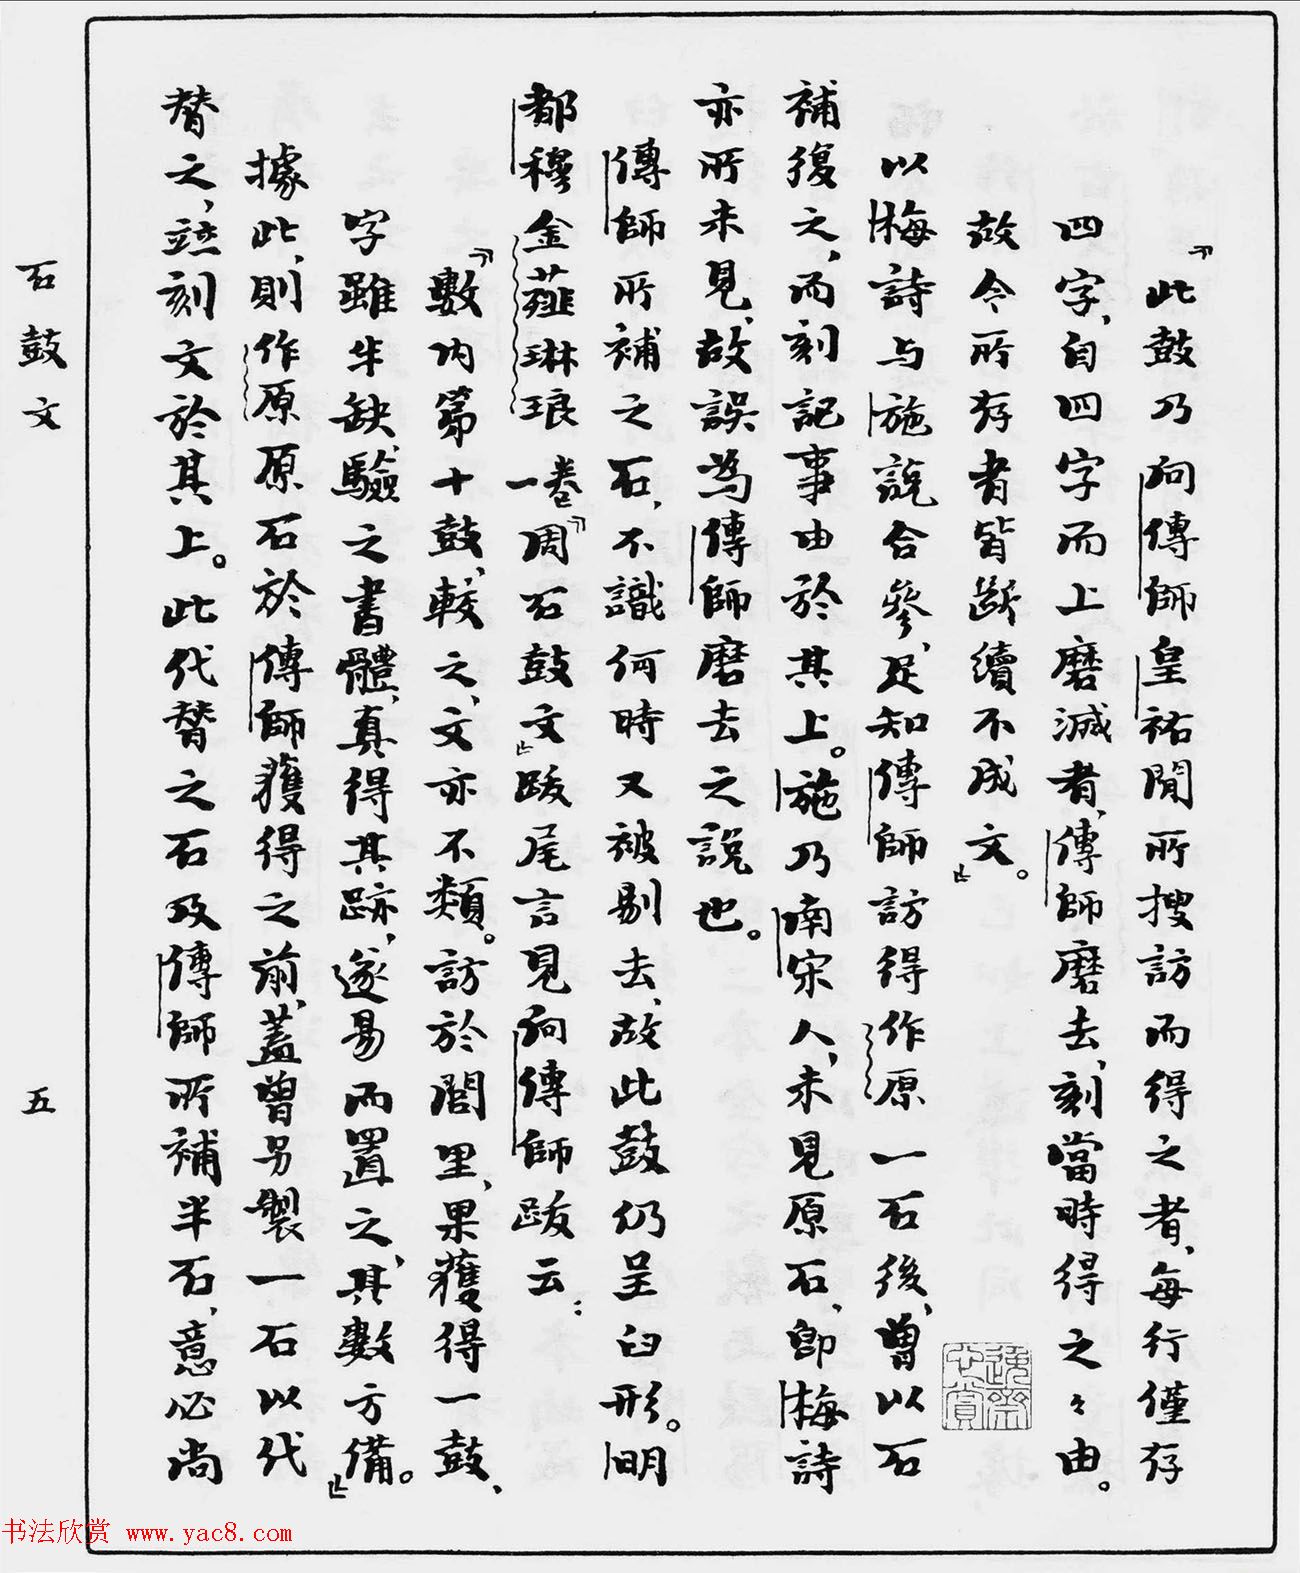 『此鼓乃向傳師皇祐間所搜訪而得之者，每行僅存
四字，自四字而上磨滅者，傳師磨去，刻當時得之々由。
故今所存者皆斷續不成文。』
以梅詩与施說合參，足知傳師訪得作原一石後，曾以石
補復之，而刻記事由於其上。施乃南宋人，未見原石，即梅詩
亦所未見，故誤為傳師磨去之說也。
傳師所補之石，不識何時又被剔去，故此鼓仍呈臼形。明
都穆金薤琳琅卷一『周石鼓文』跋尾言見向傳師跋云：
『數內第十鼓，較之，文亦不類。訪於閭里，果獲得一鼓、
字雖半缺，驗之書體，真得其跡，遂易而置之，其數方備。』
據此，則作原原石於傳師獲得之前，蓋曾另製一石以代
替之，並刻文於其上。此代替之石及傳師所補半石，意必尚
石鼓文
五
书法欣赏 www.yac8.com